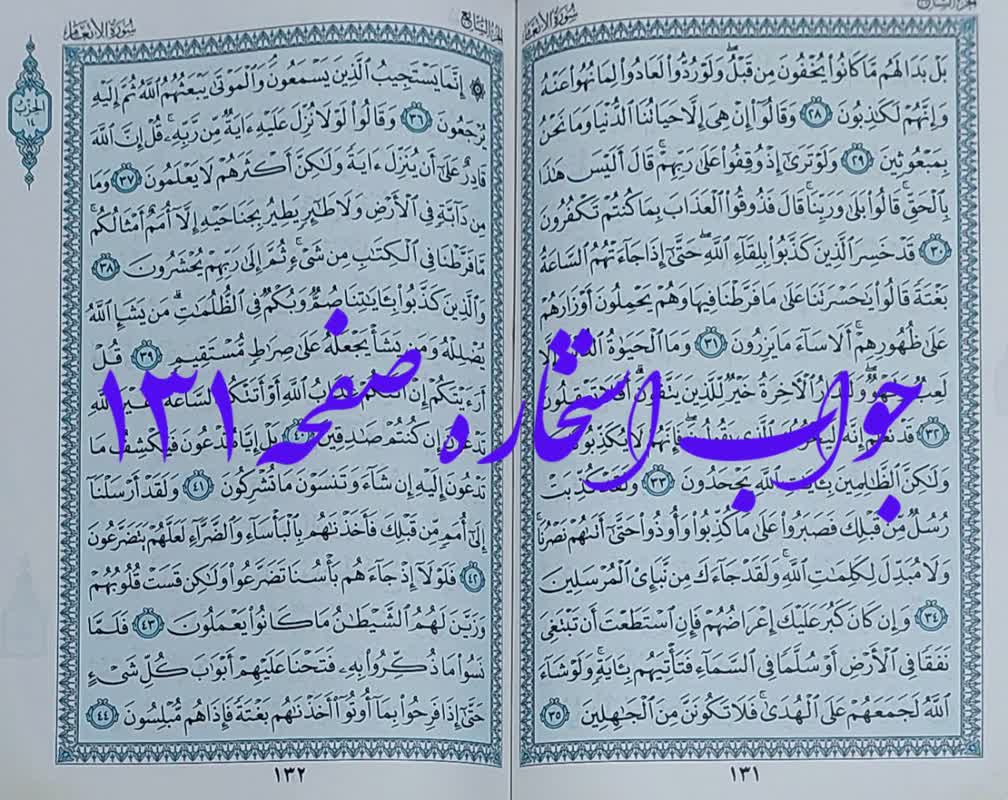 سُورَةُ الأَنعَامِ
بَلْ بَدَا لَهُم مَّا كَانُوا۟ يُخْفُونَ مِن قَبْلُ ۖ وَلَوْ رُدُّوا۟ لَعَادُوا۟ لِمَا نُهُوا۟ عَنْهُ
وَإِنَّهُمْ لَكَـٰذِبُونَ ٢٨ وَقَالُوٓا۟ إِنْ هِىَ إِلَّا حَيَاتُنَا ٱلدُّنْيَا وَمَا نَحْنُ
بِمَبْعُوثِينَ ٢٩ وَلَوْ تَرَىٰٓ إِذْ وُقِفُوا۟ عَلَىٰ رَبِّهِمْ ۚ قَالَ أَلَيْسَ هَـٰذَا
بِٱلْحَقِّ ۚ قَالُوا۟ بَلَىٰ وَرَبِّنَا ۚ قَالَ فَذُوقُوا۟ ٱلْعَذَابَ بِمَا كُنتُمْ تَكْفُرُونَ
٣٠ قَدْ خَسِرَ ٱلَّذِينَ كَذَّبُوا۟ بِلِقَآءِ ٱللَّهِ ۖ حَتَّىٰٓ إِذَا جَآءَتْهُمُ ٱلسَّاعَةُ
بَغْتَةً قَالُوا۟ يَـٰحَسْرَتَنَا عَلَىٰ مَا فَرَّطْنَا فِيهَا وَهُمْ يَحْمِلُونَ أَوْزَارَهُمْ
عَلَىٰ ظُهُورِهِمْ ۚ أَلَا سَآءَ مَا يَزِرُونَ ٣١ وَمَا ٱلْحَيَوٰةُ ٱلدُّنْيَآ إِلَّا
لَعِبٌ وَلَهْوٌ ۖ وَلَلدَّارُ ٱلْـَٔاخِرَةُ خَيْرٌ لِّلَّذِينَ يَتَّقُونَ ۗ أَفَلَا تَعْقِلُونَ
٣٢ قَدْ نَعْلَمُ إِنَّهُۥ لَيَحْزُنُكَ ٱلَّذِى يَقُولُونَ ۖ فَإِنَّهُمْ لَا يُكَذِّبُونَكَ
وَلَـٰكِنَّ ٱلظَّـٰلِمِينَ بِـَٔايَـٰتِ ٱللَّهِ يَجْحَدُونَ ٣٣ وَلَقَدْ كُذِّبَتْ
رُسُلٌ مِّن قَبْلِكَ فَصَبَرُوا۟ عَلَىٰ مَا كُذِّبُوا۟ وَأُوذُوا۟ حَتَّىٰٓ أَتَىٰهُمْ نَصْرُنَا ۚ
وَلَا مُبَدِّلَ لِكَلِمَـٰتِ ٱللَّهِ ۚ وَلَقَدْ جَآءَكَ مِن نَّبَإِى۟ ٱلْمُرْسَلِينَ
٣٤ وَإِن كَانَ كَبُرَ عَلَيْكَ إِعْرَاضُهُمْ فَإِنِ ٱسْتَطَعْتَ أَن تَبْتَغِىَ
نَفَقًا فِى ٱلْأَرْضِ أَوْ سُلَّمًا فِى ٱلسَّمَآءِ فَتَأْتِيَهُم بِـَٔايَةٍ ۚ وَلَوْ شَآءَ
ٱللَّهُ لَجَمَعَهُمْ عَلَى ٱلْهُدَىٰ ۚ فَلَا تَكُونَنَّ مِنَ ٱلْجَـٰهِلِينَ ٣٥
١٣١
الجزء السابع
سُورَةُ الأَنعَامِ
إِنَّمَا يَسْتَجِيبُ ٱلَّذِينَ يَسْمَعُونَ ۘ وَٱلْمَوْتَىٰ يَبْعَثُهُمُ ٱللَّهُ ثُمَّ إِلَيْهِ
يُرْجَعُونَ ٣٦ وَقَالُوا۟ لَوْلَا نُزِّلَ عَلَيْهِ ءَايَةٌ مِّن رَّبِّهِۦ ۚ قُلْ إِنَّ ٱللَّهَ
قَادِرٌ عَلَىٰٓ أَن يُنَزِّلَ ءَايَةً وَلَـٰكِنَّ أَكْثَرَهُمْ لَا يَعْلَمُونَ ٣٧ وَمَا
مِن دَآبَّةٍ فِى ٱلْأَرْضِ وَلَا طَـٰٓئِرٍ يَطِيرُ بِجَنَاحَيْهِ إِلَّآ أُمَمٌ أَمْثَالُكُم ۚ
مَّا فَرَّطْنَا فِى ٱلْكِتَـٰبِ مِن شَىْءٍ ۚ ثُمَّ إِلَىٰ رَبِّهِمْ يُحْشَرُونَ ٣٨
وَٱلَّذِينَ كَذَّبُوا۟ بِـَٔايَـٰتِنَا صُمٌّ وَبُكْمٌ فِى ٱلظُّلُمَـٰتِ ۗ مَن يَشَإِ ٱللَّهُ
يُضْلِلْهُ وَمَن يَشَأْ يَجْعَلْهُ عَلَىٰ صِرَٰطٍ مُّسْتَقِيمٍ ٣٩ قُلْ
أَرَءَيْتَكُمْ إِنْ أَتَىٰكُمْ عَذَابُ ٱللَّهِ أَوْ أَتَتْكُمُ ٱلسَّاعَةُ أَغَيْرَ ٱللَّهِ
تَدْعُونَ إِن كُنتُمْ صَـٰدِقِينَ ٤٠ بَلْ إِيَّاهُ تَدْعُونَ فَيَكْشِفُ مَا
تَدْعُونَ إِلَيْهِ إِن شَآءَ وَتَنسَوْنَ مَا تُشْرِكُونَ ٤١ وَلَقَدْ أَرْسَلْنَآ
إِلَىٰٓ أُمَمٍ مِّن قَبْلِكَ فَأَخَذْنَـٰهُم بِٱلْبَأْسَآءِ وَٱلضَّرَّآءِ لَعَلَّهُمْ يَتَضَرَّعُونَ
٤٢ فَلَوْلَآ إِذْ جَآءَهُم بَأْسُنَا تَضَرَّعُوا۟ وَلَـٰكِن قَسَتْ قُلُوبُهُمْ
وَزَيَّنَ لَهُمُ ٱلشَّيْطَـٰنُ مَا كَانُوا۟ يَعْمَلُونَ ٤٣ فَلَمَّا
نَسُوا۟ مَا ذُكِّرُوا۟ بِهِۦ فَتَحْنَا عَلَيْهِمْ أَبْوَٰبَ كُلِّ شَىْءٍ
حَتَّىٰٓ إِذَا فَرِحُوا۟ بِمَآ أُوتُوٓا۟ أَخَذْنَـٰهُم بَغْتَةً فَإِذَا هُم مُّبْلِسُونَ ٤٤
١٣٢
الحزب
١٤
جواب استخاره صفحه ۱۳۱